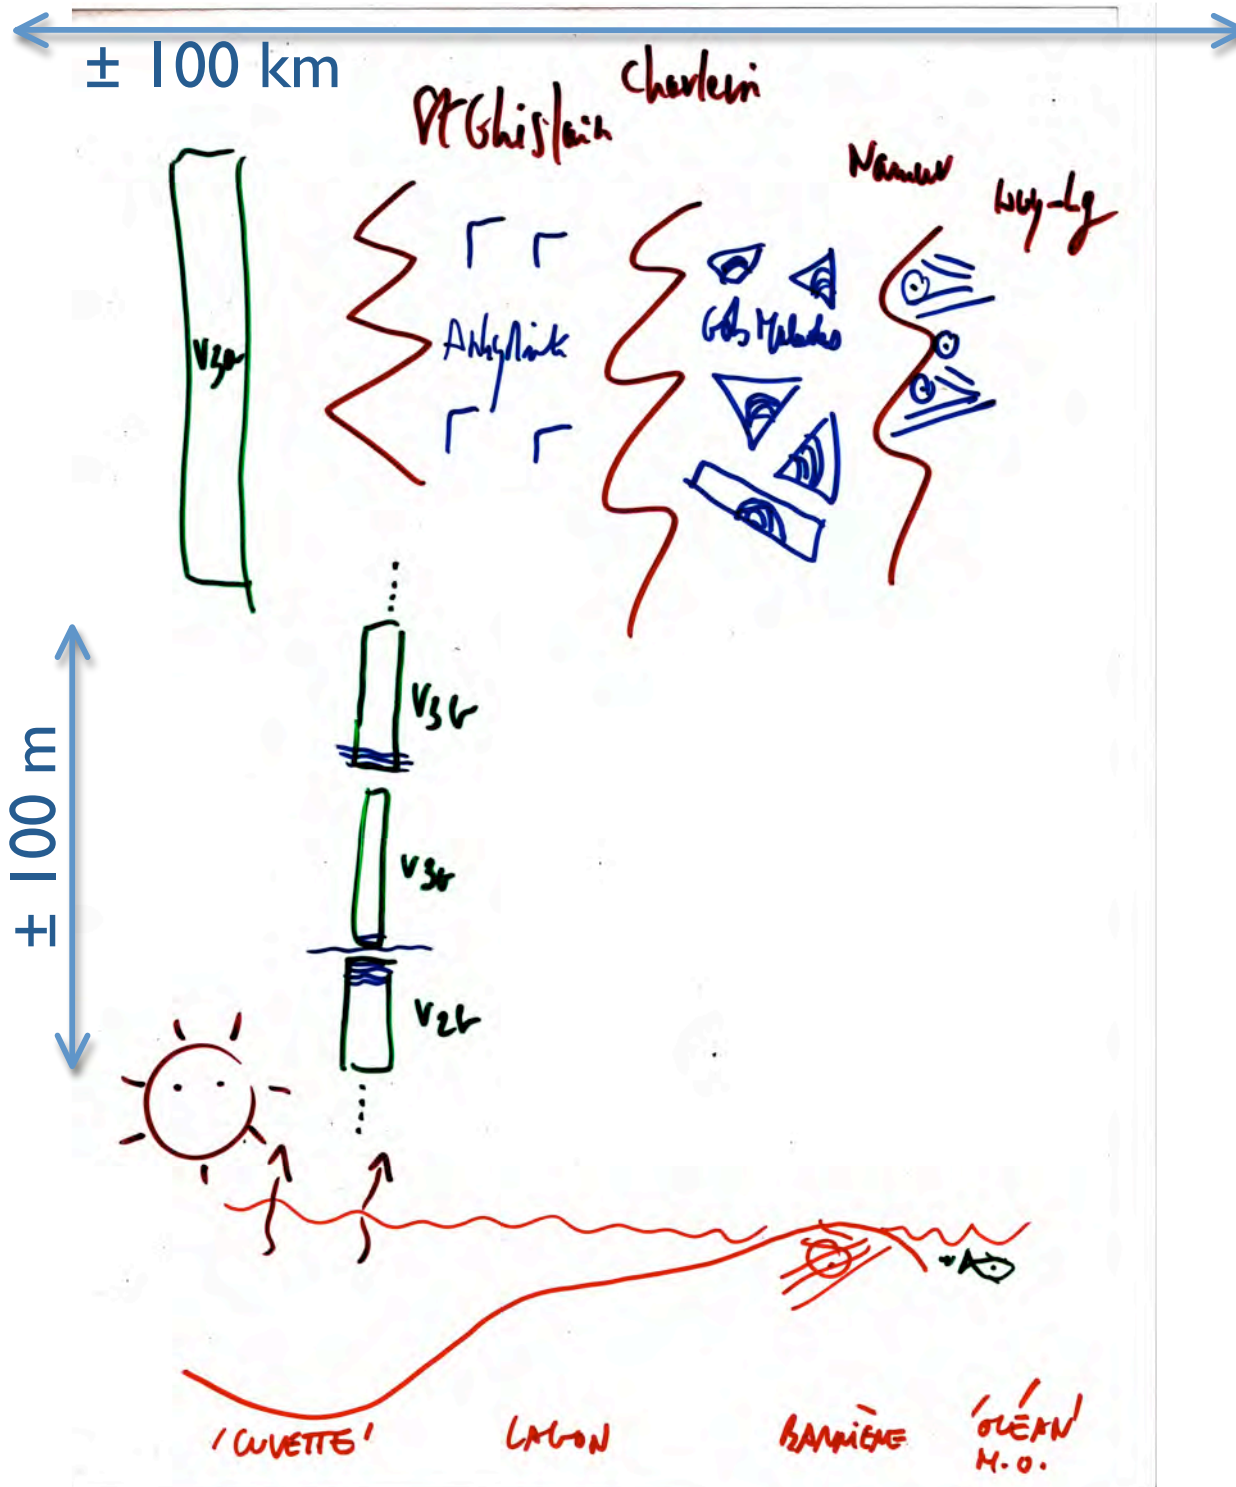 ± 100 km
St Ghislain
Charleroi
Namur
Huy-Lg
V3a
Anhydrite
Gds Malades
± 100 m
V3b
V3b
V2b
'CUVETTE'
LAGON
BARRIÈRE
'OCÉAN'
M.O.